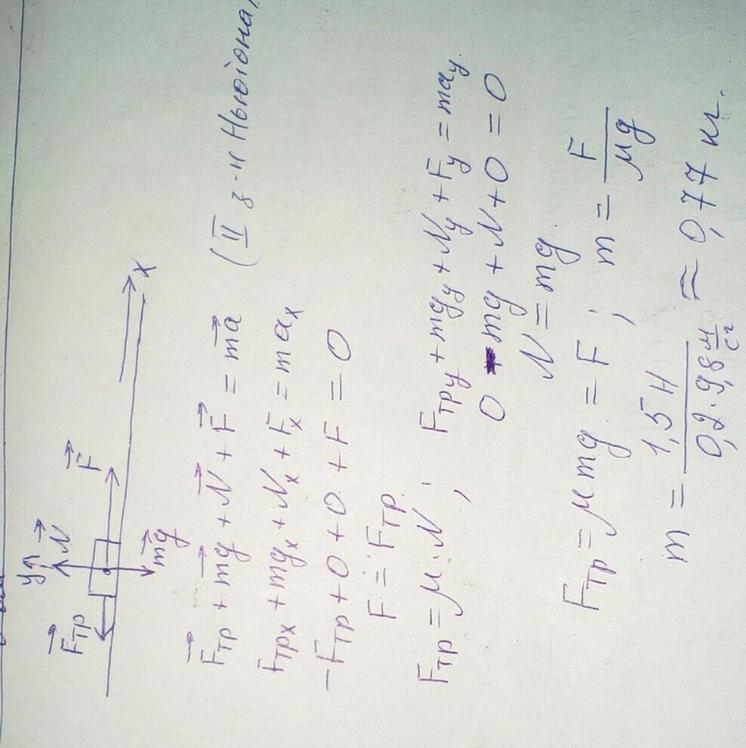 y N⃗
F⃗тр F⃗
mg⃗ x
F⃗тр + mg⃗ + N⃗ + F⃗ = ma⃗ (II з-н Ньютона)
Fтрx + mgx + Nx + Fx = max
-Fтр + 0 + 0 + F = 0
F = Fтр
Fтр = μ·N ; Fтрy + mgy + Ny + Fy = may
0 - mg + N + 0 = 0
N = mg
Fтр = μmg = F ; m = F/μg
m = 1,5 Н / 0,2·9,8 м/с² ≈ 0,77 кг.